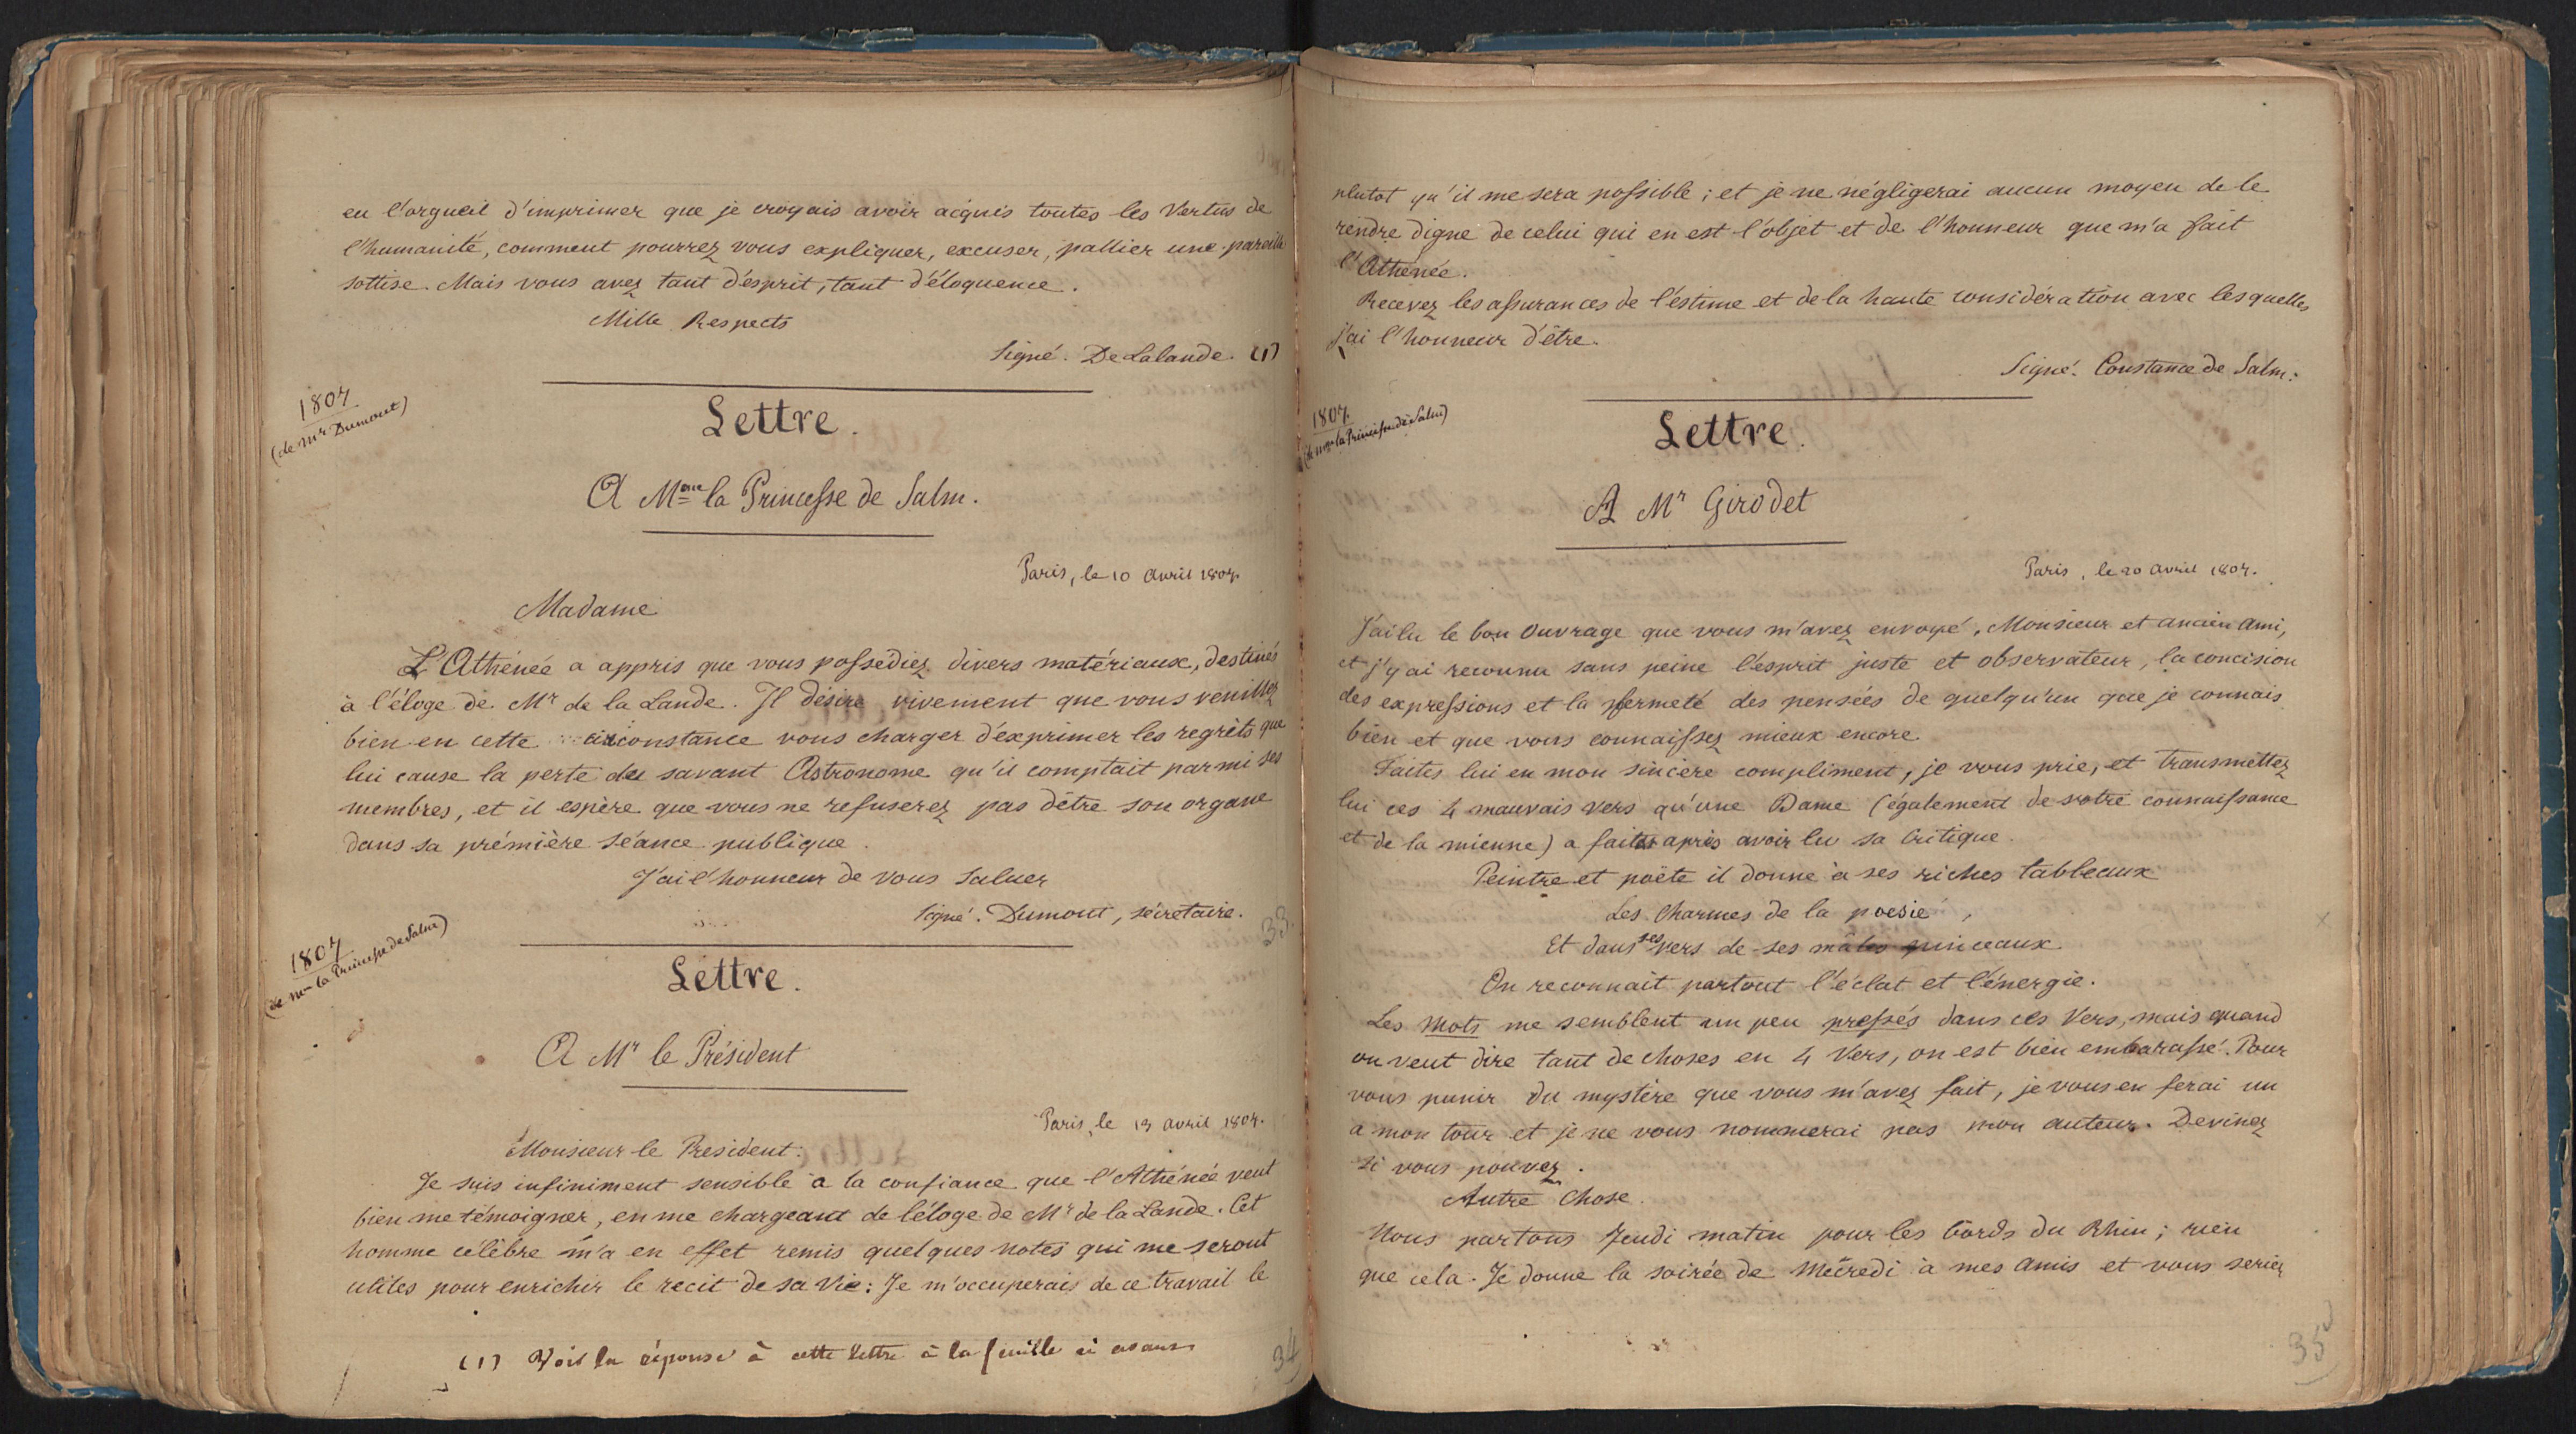 eu l'orgueil d'imprimer que je croyais avoir acquis toutes les Vertus de
l'humanité, comment pourrez vous expliquer, excuser, pallier une pareille
sottise. Mais vous avez tant d'ésprit, tant d'éloquence.
Mille Respects
Signé. De Lalande. (1)
1807
(de Mr Dumont)
Lettre.
A Mme la Princesse de Salm.
Paris, le 10 avril 1807.
Madame
L'Athénée a appris que vous possédiez divers matériaux, destinés
à l'éloge de Mr de la Lande. Il désire vivement que vous veuillez
bien en cette circonstance vous charger d'éxprimer les regrèts que
lui cause la perte du savant Astronome qu'il comptait parmi ses
membres, et il espère que vous ne refuserez pas d'être son organe
dans sa prémière séance publique.
J'ai l'honneur de vous Saluer
Signé. Dumont, sécretaire.
33
1807
(de Mme la Princesse de Salm)
Lettre.
A Mr le Président
Paris, le 13 avril 1807.
Monsieur le Président.
Je suis infiniment sensible à la confiance que l'Athénée veut
bien me témoigner, en me chargeant de l'éloge de Mr de la Lande. Cet
homme célèbre m'a en effet remis quelques notes qui me seront
utiles pour enrichir le recit de sa Vie: Je m'occuperais de ce travail le
(1) Voir la réponse à cette lettre à la feuille ci avant
34
plutot qu'il me sera possible; et je ne négligerai aucun moyen de le
rendre digne de celui qui en est l'objet et de l'honneur que m'a fait
l'Athénée.
Recevez les assurances de l'éstime et de la haute considération avec lesquelles
j'ai l'honneur d'être.
Signé. Constance de Salm.
1807.
(de Mme la Princesse de Salm)
Lettre.
A Mr Girodet
Paris, le 20 avril 1807.
J'ai lu le bon Ouvrage que vous m'avez envoyé, Monsieur et ancien ami,
et j'y ai reconnu sans peine l'ésprit juste et observateur, la concision
des expressions et la fermeté des pensées de quelqu'un que je connais
bien et que vous connaissez mieux encore.
Faites lui en mon sincère compliment, je vous prie, et transmettez
lui ces 4 mauvais vers qu'une Dame (également de votre connaissance
et de la mienne) a faits après avoir lu sa Critique.
Peintre et poëte il donne à ses riches tableaux
Les Charmes de la poesie,
Et dans ses vers de ses mâles pinceaux
On reconnait partout l'éclat et l'énergie.
Les mots me semblent un peu pressés dans ces Vers, mais quand
on veut dire tant de choses en 4 Vers, on est bien embarassé. Pour
vous punir du mystère que vous m'avez fait, je vous en ferai un
a mon tour et je ne vous nommerai pas mon auteur. Devinez
si vous pouvez.
Autre Chose.
Nous partons Jeudi matin pour les bords du Rhin; rien
que cela. Je donne la soirée de Mécredi à mes amis et vous seriez
35